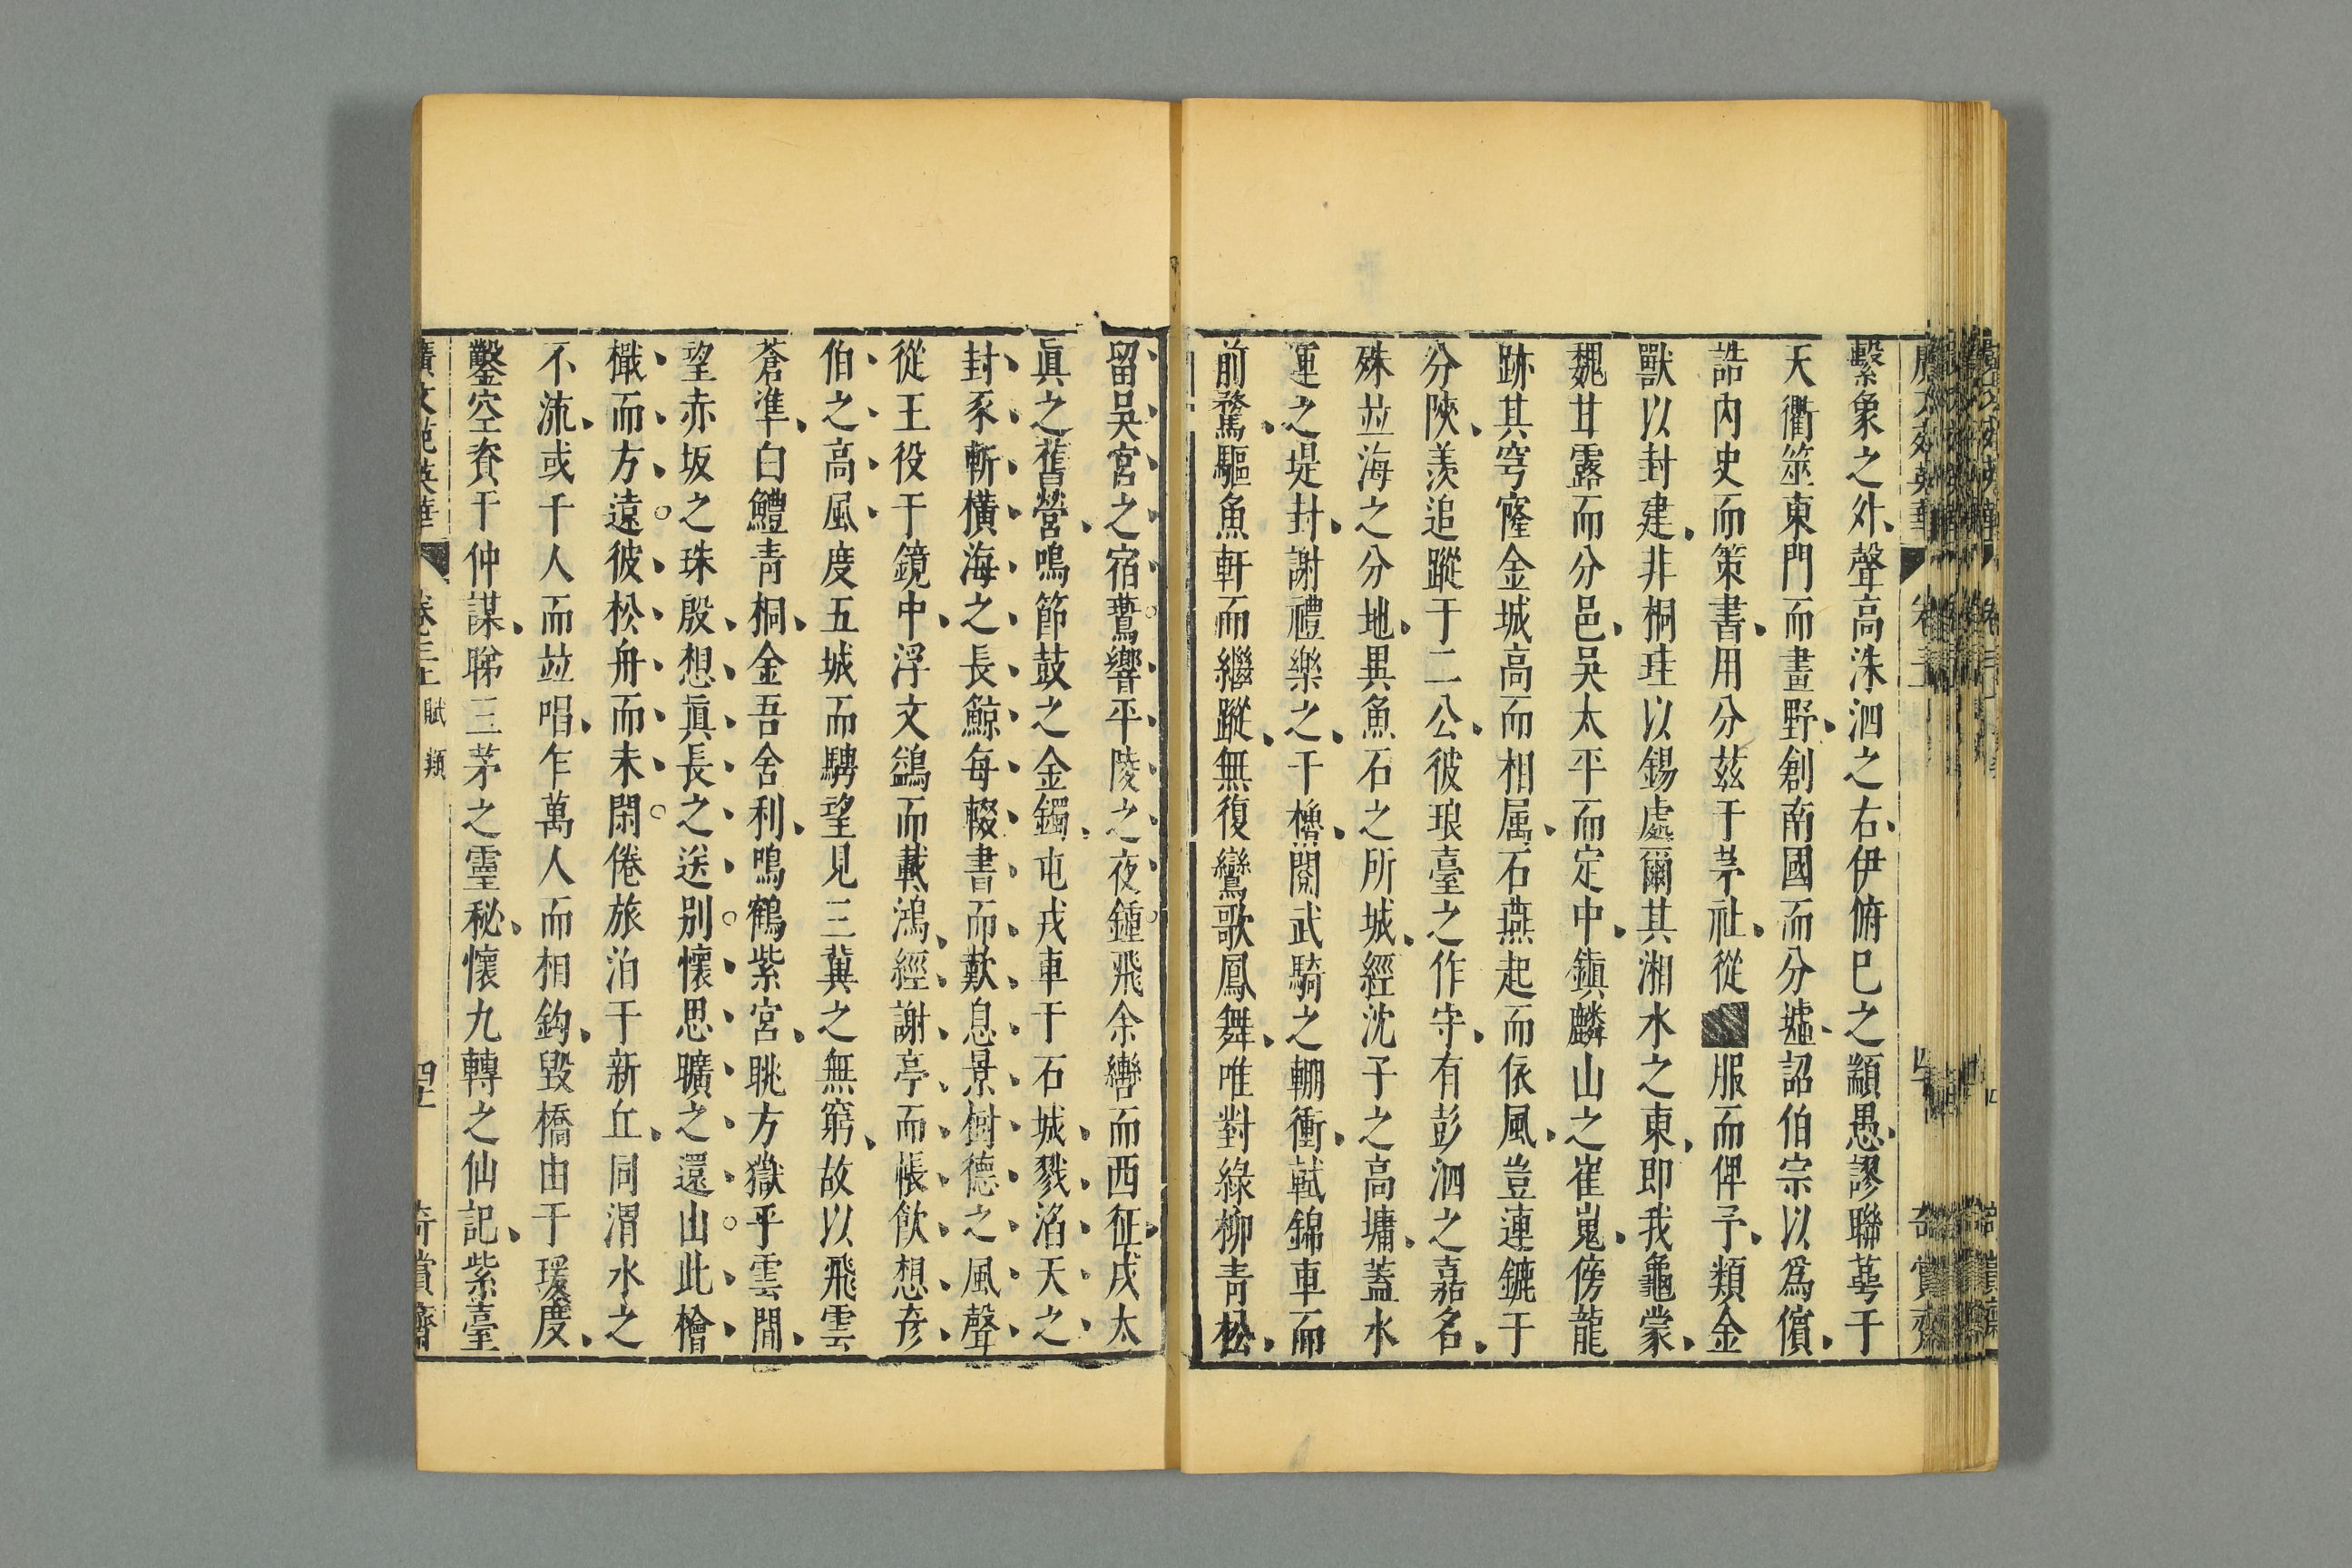 繫象之外聲高洙泗之右伊俯巳之顓愚謬聯萼于
天衢筮東門而畫野創南國而分墟詔伯宗以爲儐
誥內史而策書用分茲于茅社從服而俾予類金
獸以封建非桐珪以錫處爾其湘水之東即我龜蒙
魏甘露而分邑吳太平而定中鎮麟山之崔嵬傍龍
跡其穹窿金城高而相属石燕起而依風豈連鑣于
分陝羨追蹤于二公彼琅臺之作守有彭泗之嘉名
殊並海之分地異魚石之所城經沈子之高墉蓋水
運之堤封謝禮樂之干櫓閱武騎之輣衝軾錦車而
前騖驅魚軒而繼蹤無復鸞歌鳳舞唯對綠柳青松
留吳宮之宿鷰響平陵之夜鍾飛余轡而西征戍太
眞之舊營鳴節鼓之金鐲屯戎車于石城戮滔天之
封豕斬橫海之長鯨每輟書而歎息景樹德之風聲
從王役于鏡中浮文鷁而載鴻經謝亭而帳飲想彥
伯之高風度五城而騁望見三冀之無窮故以飛雲
蒼準白鱧青桐金吾舍利鳴鶴紫宮眺方嶽乎雲間
望赤坂之珠殷想眞長之送別懷思曠之還山此檜
檝而方遠彼松舟而未閑倦旅泊于新丘同渭水之
不流或千人而並唱乍萬人而相鈎毀橋由于瑗度
鑿空賚于仲謀睇三茅之靈秘懷九轉之仙記紫臺
廣文苑英華 卷三上 賦類 四十 奇賞齋